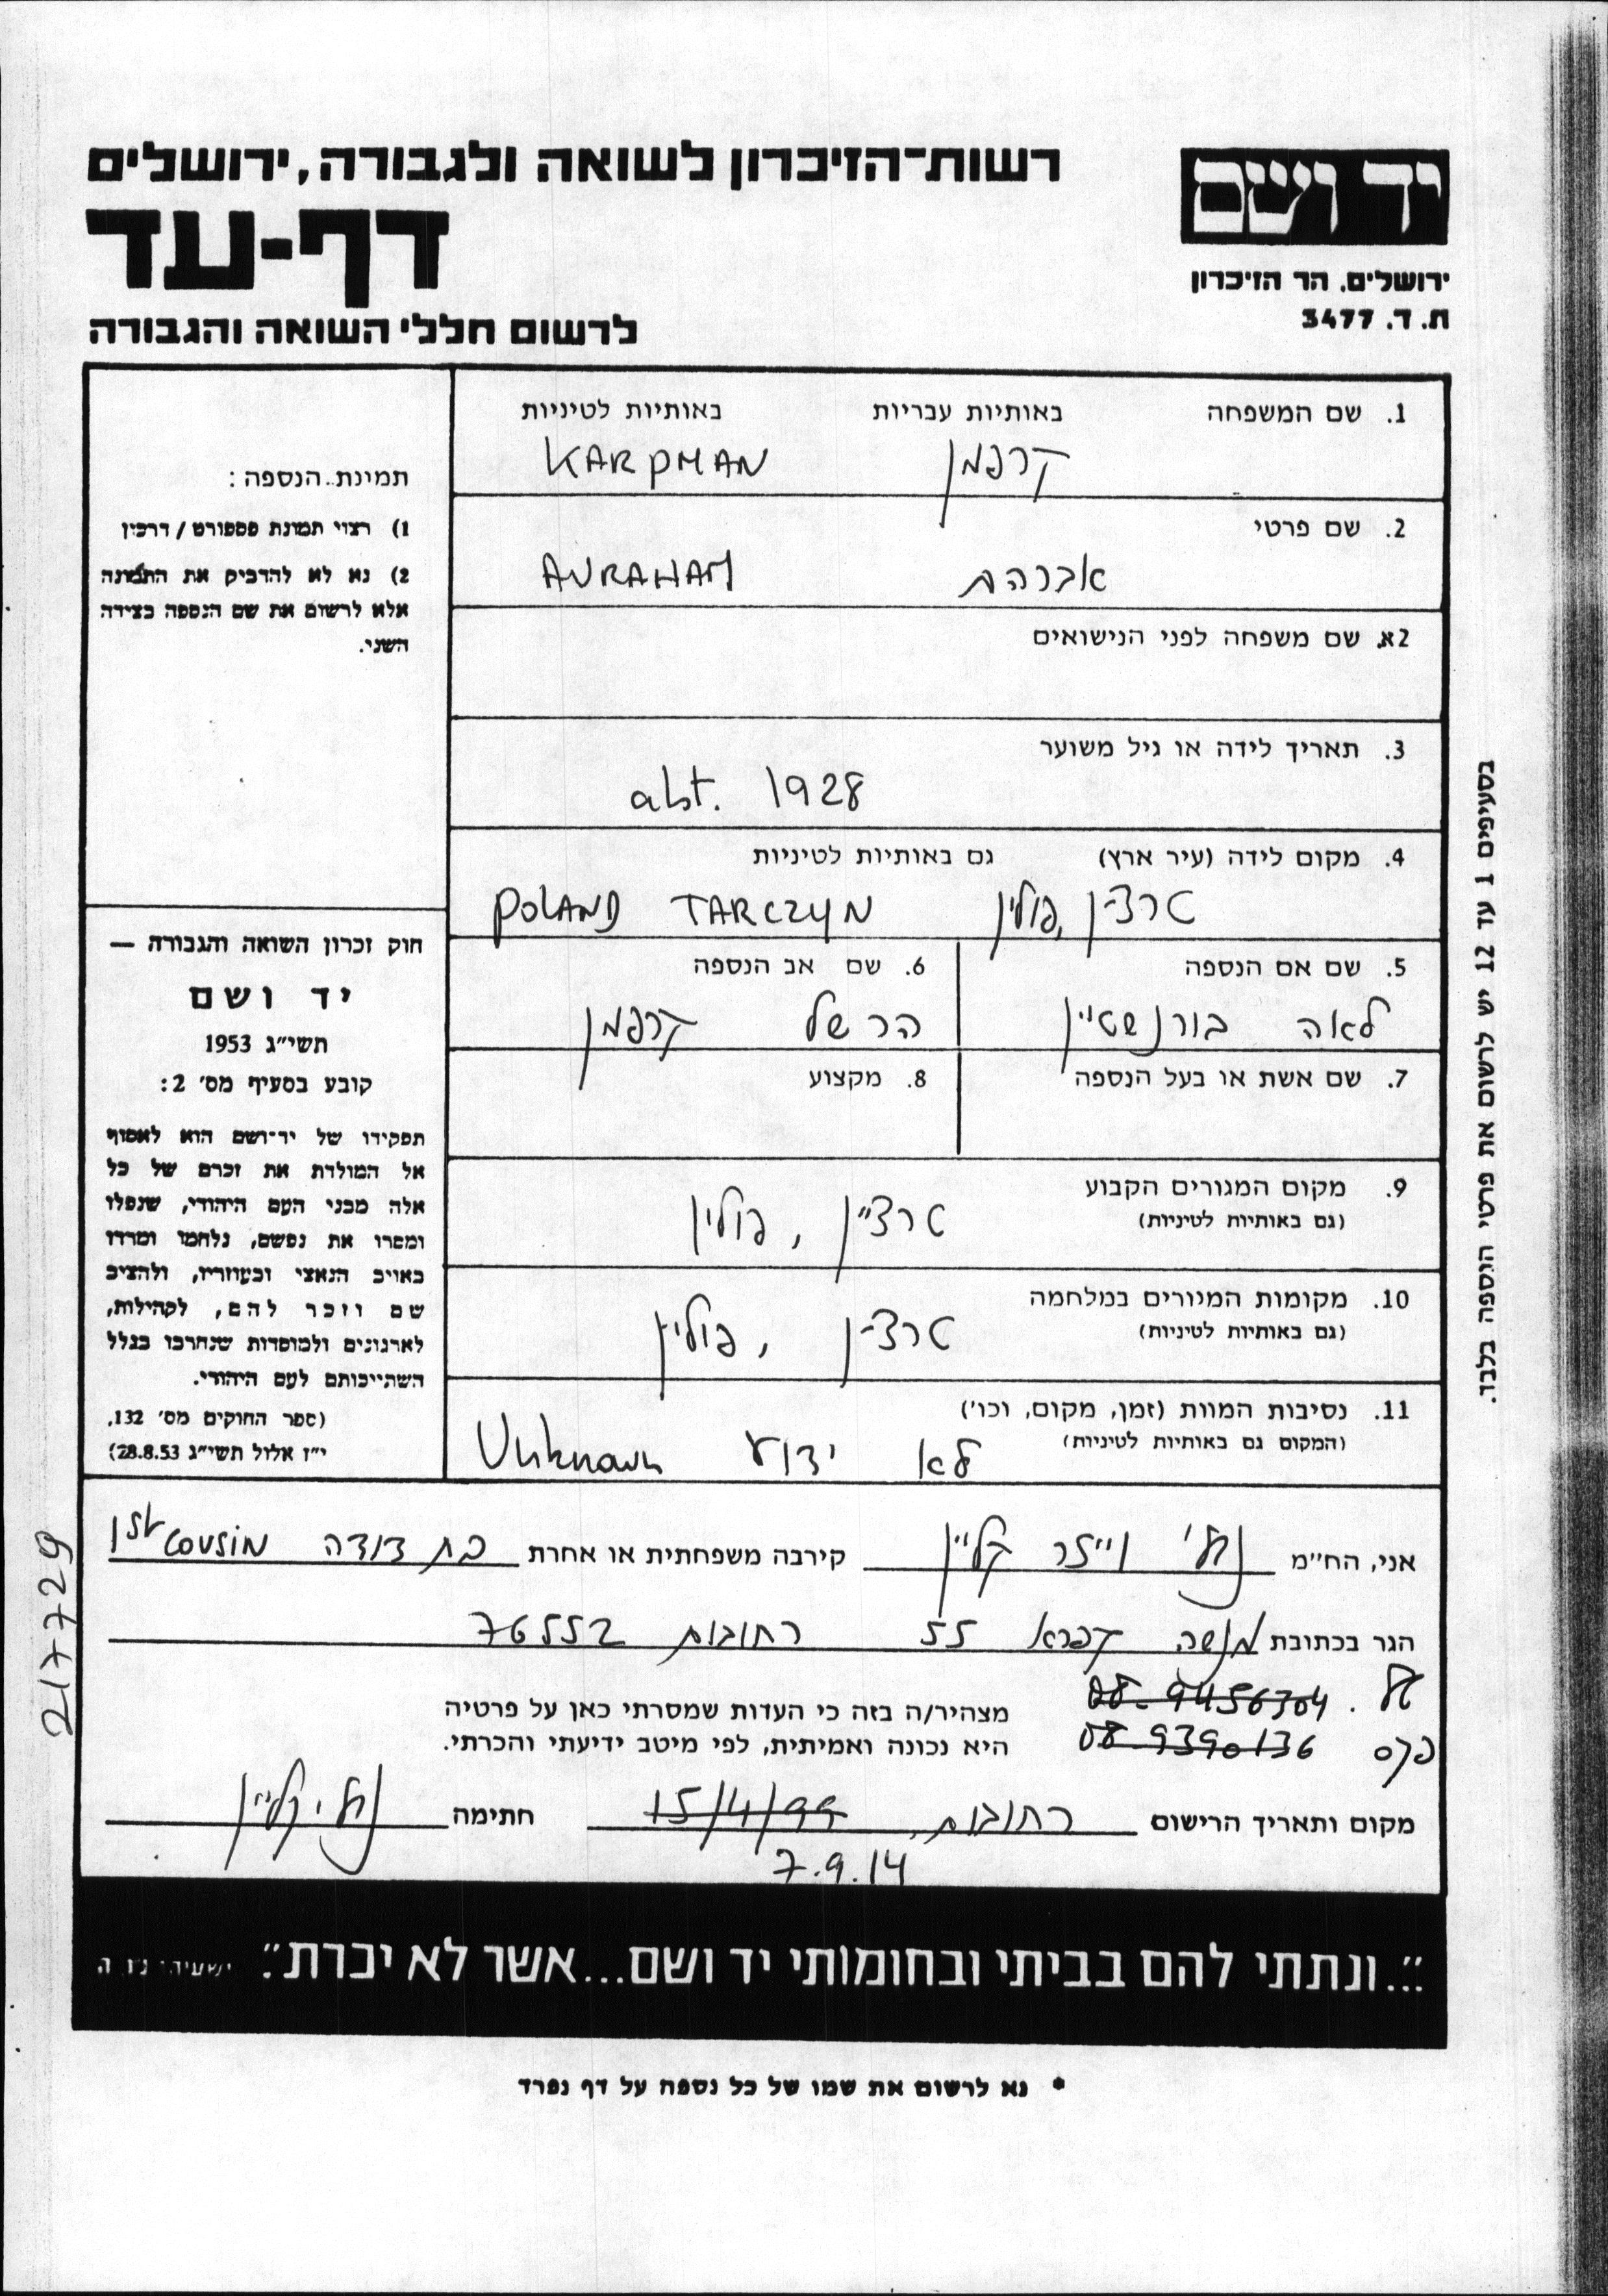 רשות-הזיכרון לשואה ולגבורה, ירושלים
דף-עד
לרשום חללי השואה והגבורה
יד ושם
ירושלים, הר הזיכרון
ת. ד. 3477
1. שם המשפחה באותיות עבריות באותיות לטיניות
קרפמן KARPMAN
2. שם פרטי
אברהם AVRAHAM
2א. שם משפחה לפני הנישואים
3. תאריך לידה או גיל משוער
abt. 1928
4. מקום לידה (עיר ארץ) גם באותיות לטיניות
טרצ'ין, פולין POLAND TARCZYN
5. שם אם הנספה 6. שם אב הנספה
לאה בורנשטיין הרשל קרפמן
7. שם אשת או בעל הנספה 8. מקצוע
9. מקום המגורים הקבוע
(גם באותיות לטיניות)
טרצ'ין, פולין
10. מקומות המגורים במלחמה
(גם באותיות לטיניות)
טרצ'ין, פולין
11. נסיבות המוות (זמן, מקום, וכו')
(המקום גם באותיות לטיניות)
לא ידוע Unknown
תמונת הנספה:
1) רצוי תמונת פספורט / דרכון
2) נא לא להדביק את התמונה
אלא לרשום את שם הנספה בצידה
השני.
חוק זכרון השואה והגבורה —
יד ושם
תשי"ג 1953
קובע בסעיף מס' 2:
תפקידו של יד-ושם הוא לאסוף
אל המולדת את זכרם של כל
אלה מבני העם היהודי, שנפלו
ומסרו את נפשם, נלחמו ומרדו
באויב הנאצי ובעוזריו, ולהציב
שם וזכר להם, לקהילות,
לארגונים ולמוסדות שנחרבו בגלל
השתייכותם לעם היהודי.
(ספר החוקים מס' 132,
י"ז אלול תשי"ג 28.8.53)
בסעיפים 1 עד 12 יש לרשום את פרטי הנספה בלבד.
217729
אני, הח"מ וייזר קליין קירבה משפחתית או אחרת בת דודה 1st COUSIN
הגר בכתובת מנשה קפרא 55 רחובות 76552
טל. 08-9456304
פקס 08-9390136
מצהיר/ה בזה כי העדות שמסרתי כאן על פרטיה
היא נכונה ואמיתית, לפי מיטב ידיעתי והכרתי.
מקום ותאריך הרישום רחובות, 15/4/99 חתימה קליין
7.9.14
"...ונתתי להם בביתי ובחומותי יד ושם...אשר לא יכרת". ישעיהו נו ה
* נא לרשום את שמו של כל נספה על דף נפרד